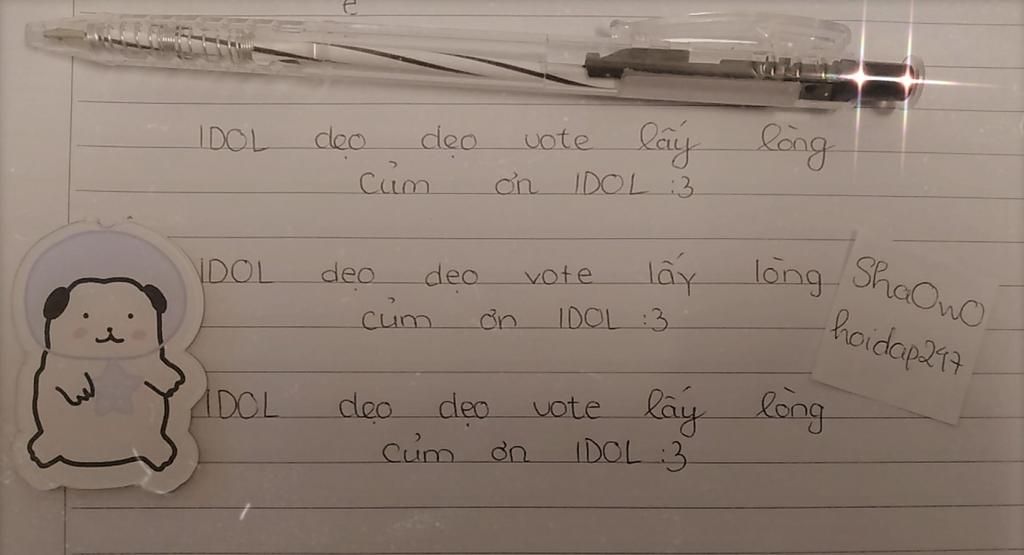 IDOL dẹo dẹo vote lấy lòng
Củm ơn IDOL :3
IDOL dẹo dẹo vote lấy lòng
củm ơn IDOL :3
IDOL dẹo dẹo vote lấy lòng
củm ơn IDOL :3
ShaOwO
hoidap247